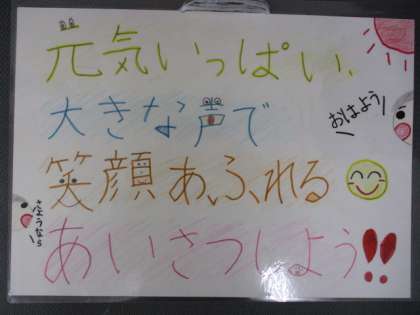 元気いっぱい、
大きな声で
おはよう
笑顔あふれる
さようなら
あいさつしよう!!